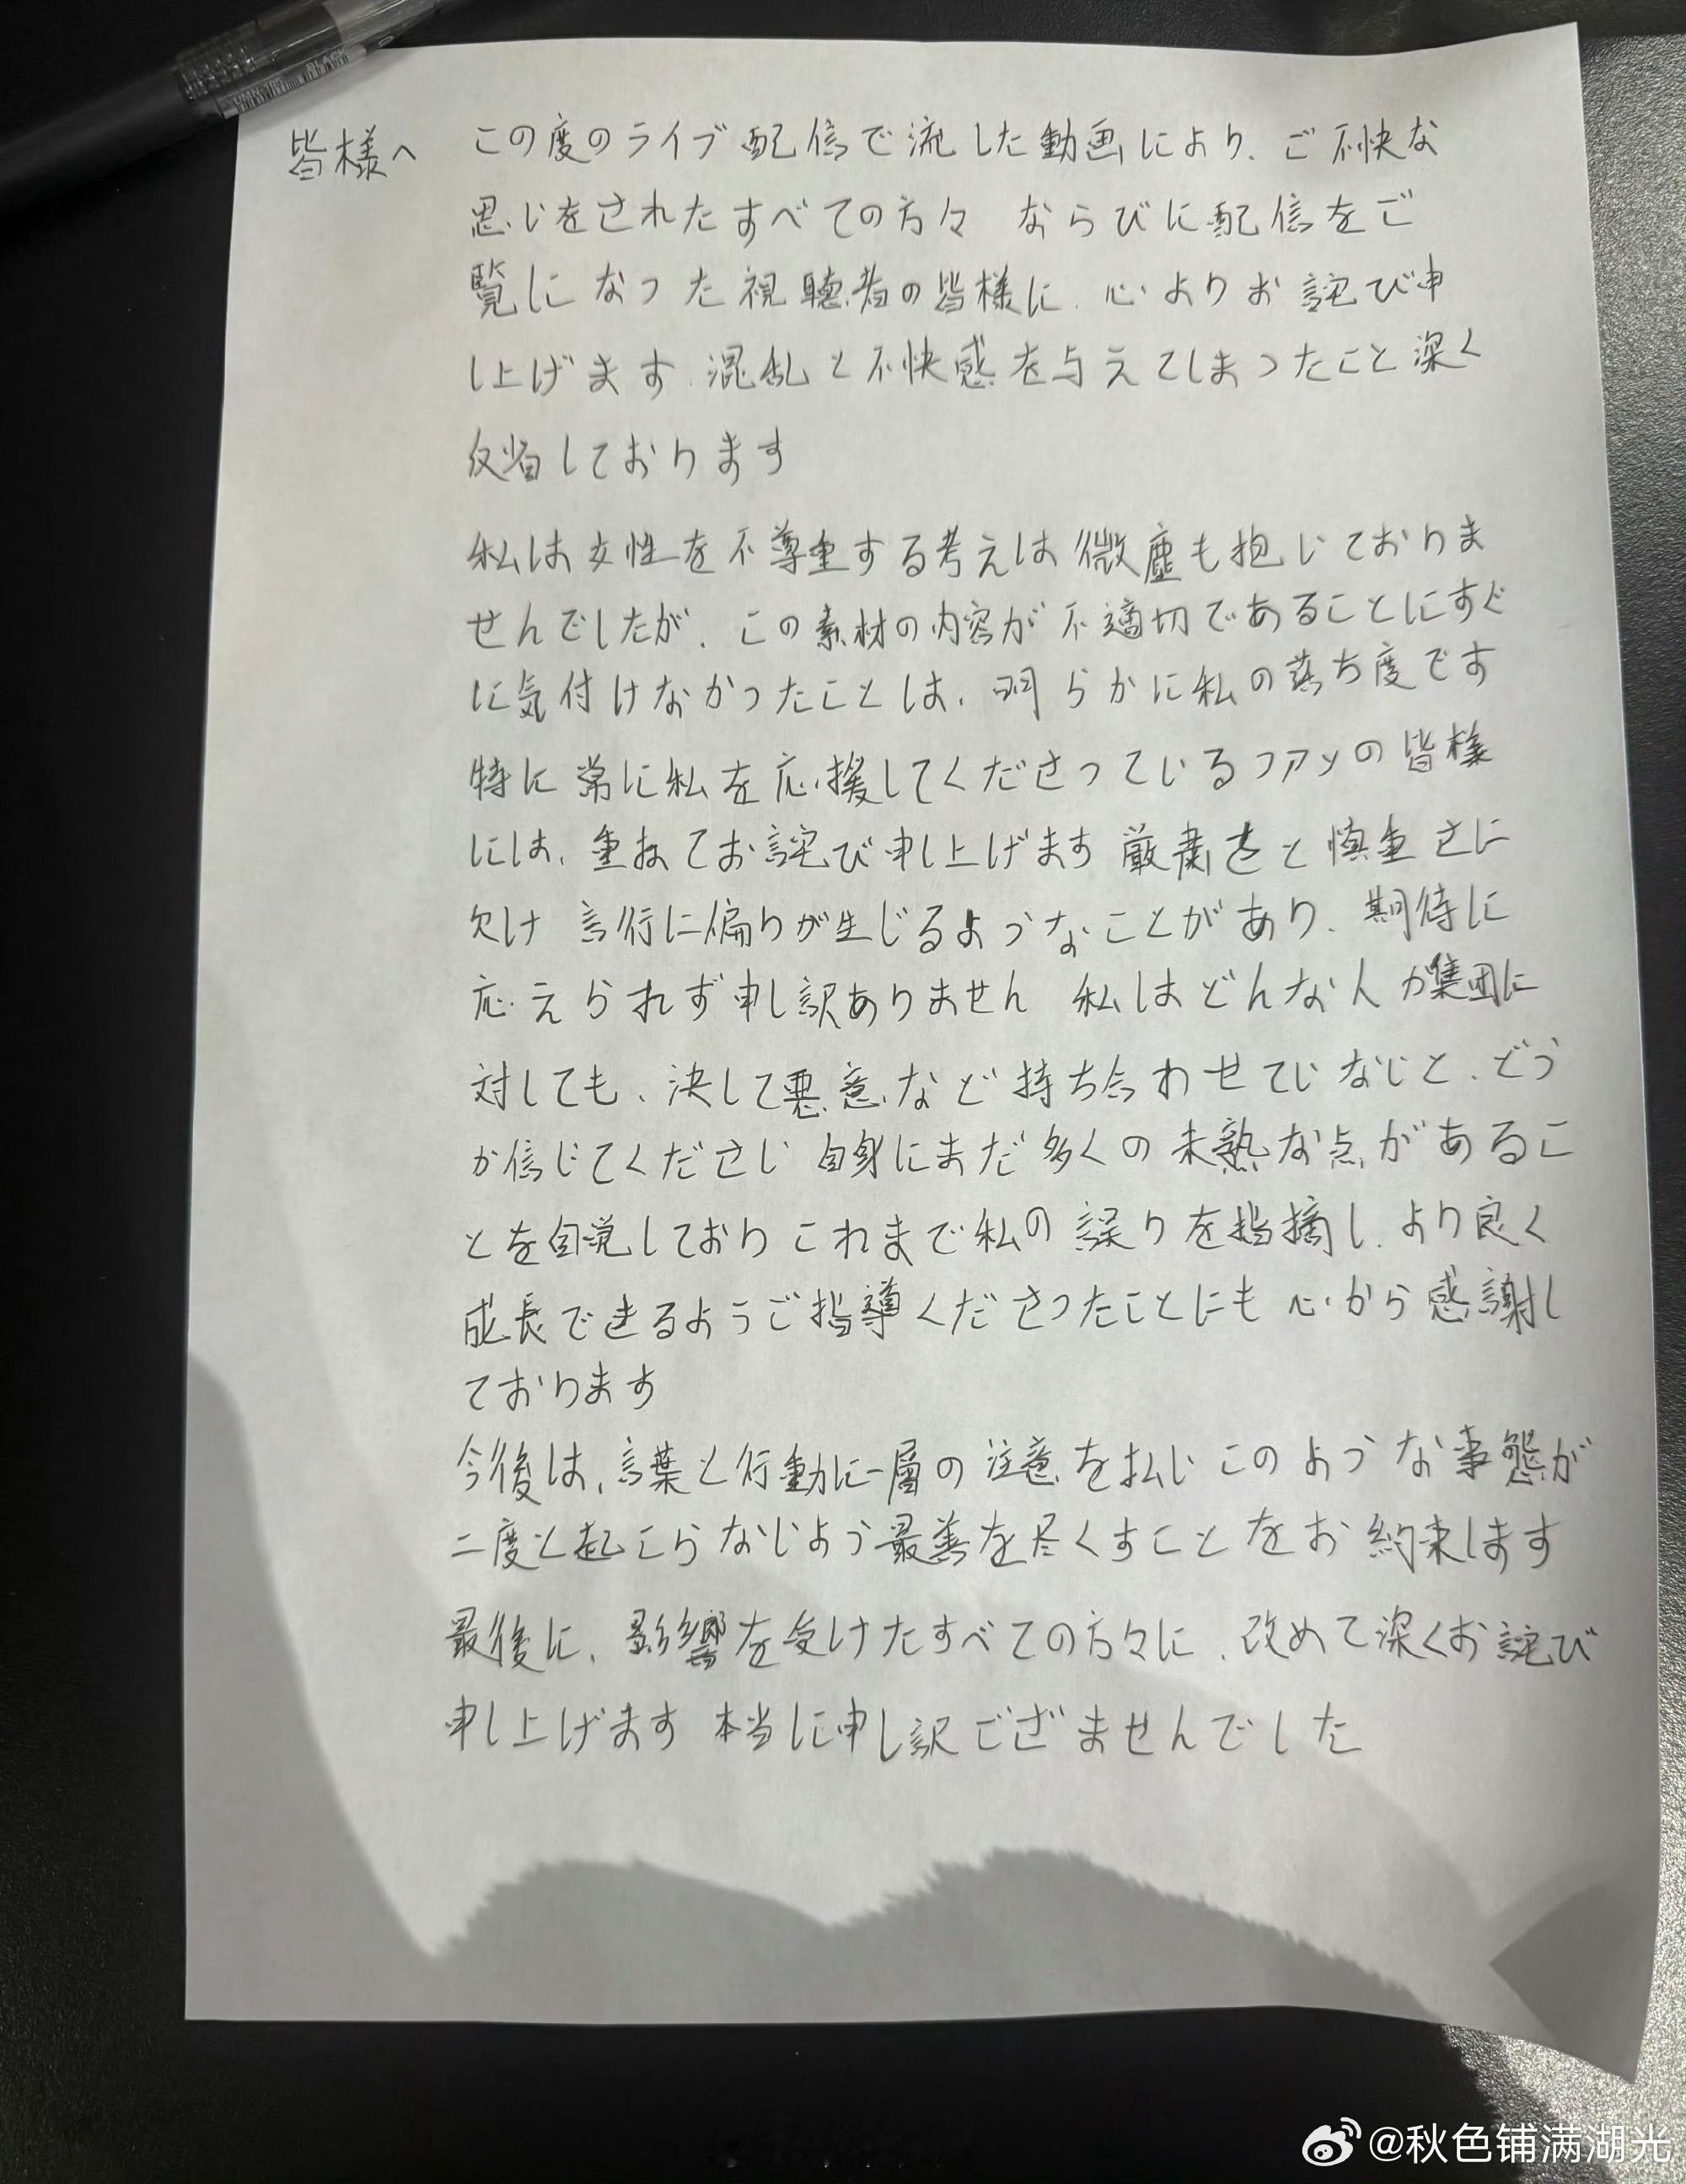 皆様へ この度のライブ配信で流した動画により、ご不快な
思いをされたすべての方々 ならびに配信をご
覧になった視聴者の皆様に、心よりお詫び申
し上げます、混乱と不快感を与えてしまったこと深く
反省しております
私は女性を不尊重する考えは微塵も抱いておりま
せんでしたが、この素材の内容が不適切であることにすぐ
に気付けなかったことは、明らかに私の落ち度です
特に常に私を応援してくださっているファンの皆様
には、重ねてお詫び申し上げます 厳粛さと慎重さに
欠け 言行に偏りが生じるようなことがあり、期待に
応えられず申し訳ありません 私はどんな人か集団に
対しても、決して悪意など持ち合わせていないと、どう
か信じてください 自身にまだ多くの未熟な点があるこ
とを自覚しており これまで私の誤りを指摘し、より良く
成長できるようご指導くださったことにも心から感謝し
ております
今後は、言葉と行動に一層の注意を払い このような事態が
二度と起こらないよう最善を尽くすことをお約束します
最後に、影響を受けたすべての方々に、改めて深くお詫び
申し上げます 本当に申し訳ござませんでした
@秋色铺满湖光